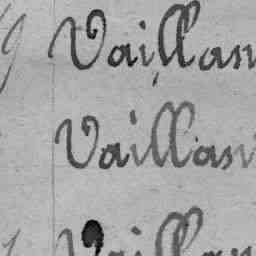 Vaillan
Vaillan
Vaillan